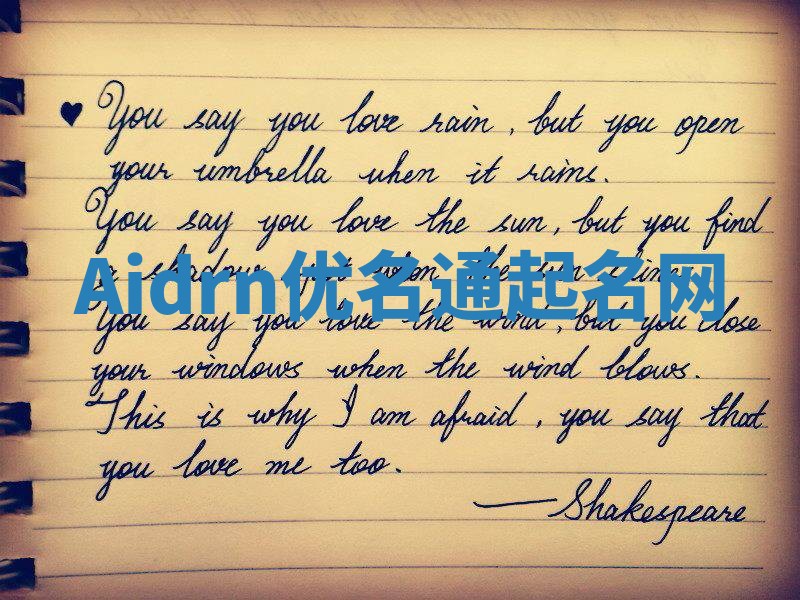 ♥ You say you love rain, but you open
your umbrella when it rains.
You say you love the sun, but you find
a shadow spot when the sun shines.
Aidrn优名通起名网
You say you love the wind, but you close
your windows when the wind blows.
This is why I am afraid, you say that
you love me too.
—Shakespeare